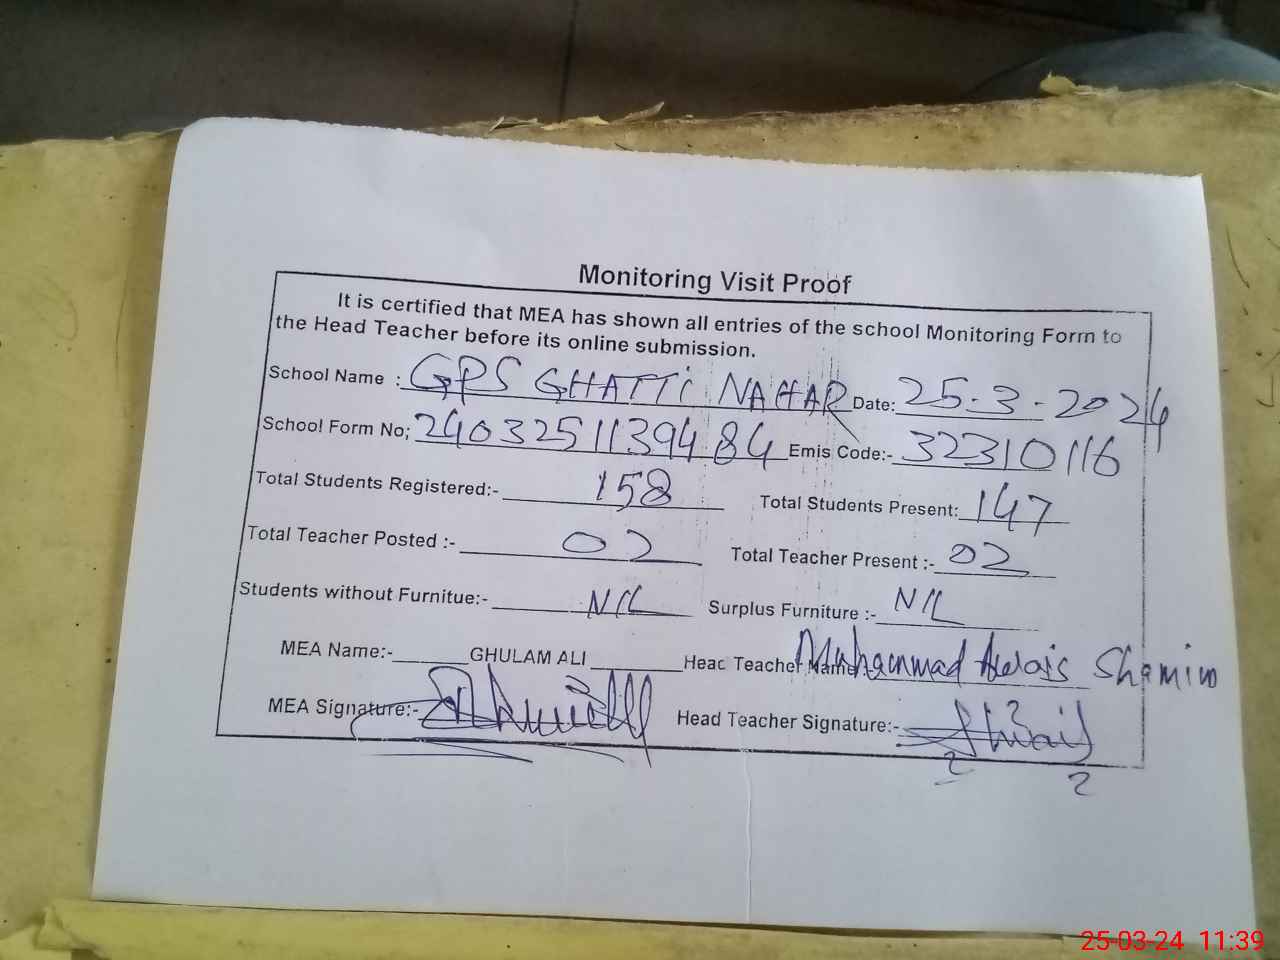 Monitoring Visit Proof
It is certified that MEA has shown all entries of the school Monitoring Form to
the Head Teacher before its online submission.
School Name : GPS GHATTI NAHAR Date: 25-3-2024
School Form No; 24032511394 84 Emis Code:- 32310116
Total Students Registered:- 158 Total Students Present: 147
Total Teacher Posted :- 02 Total Teacher Present :- 02
Students without Furnitue:- NIL Surplus Furniture :- NIL
MEA Name:- GHULAM ALI Head Teacher Name:- Muhammad Awais Shamim
MEA Signature:- Head Teacher Signature:-
25-03-24 11:39